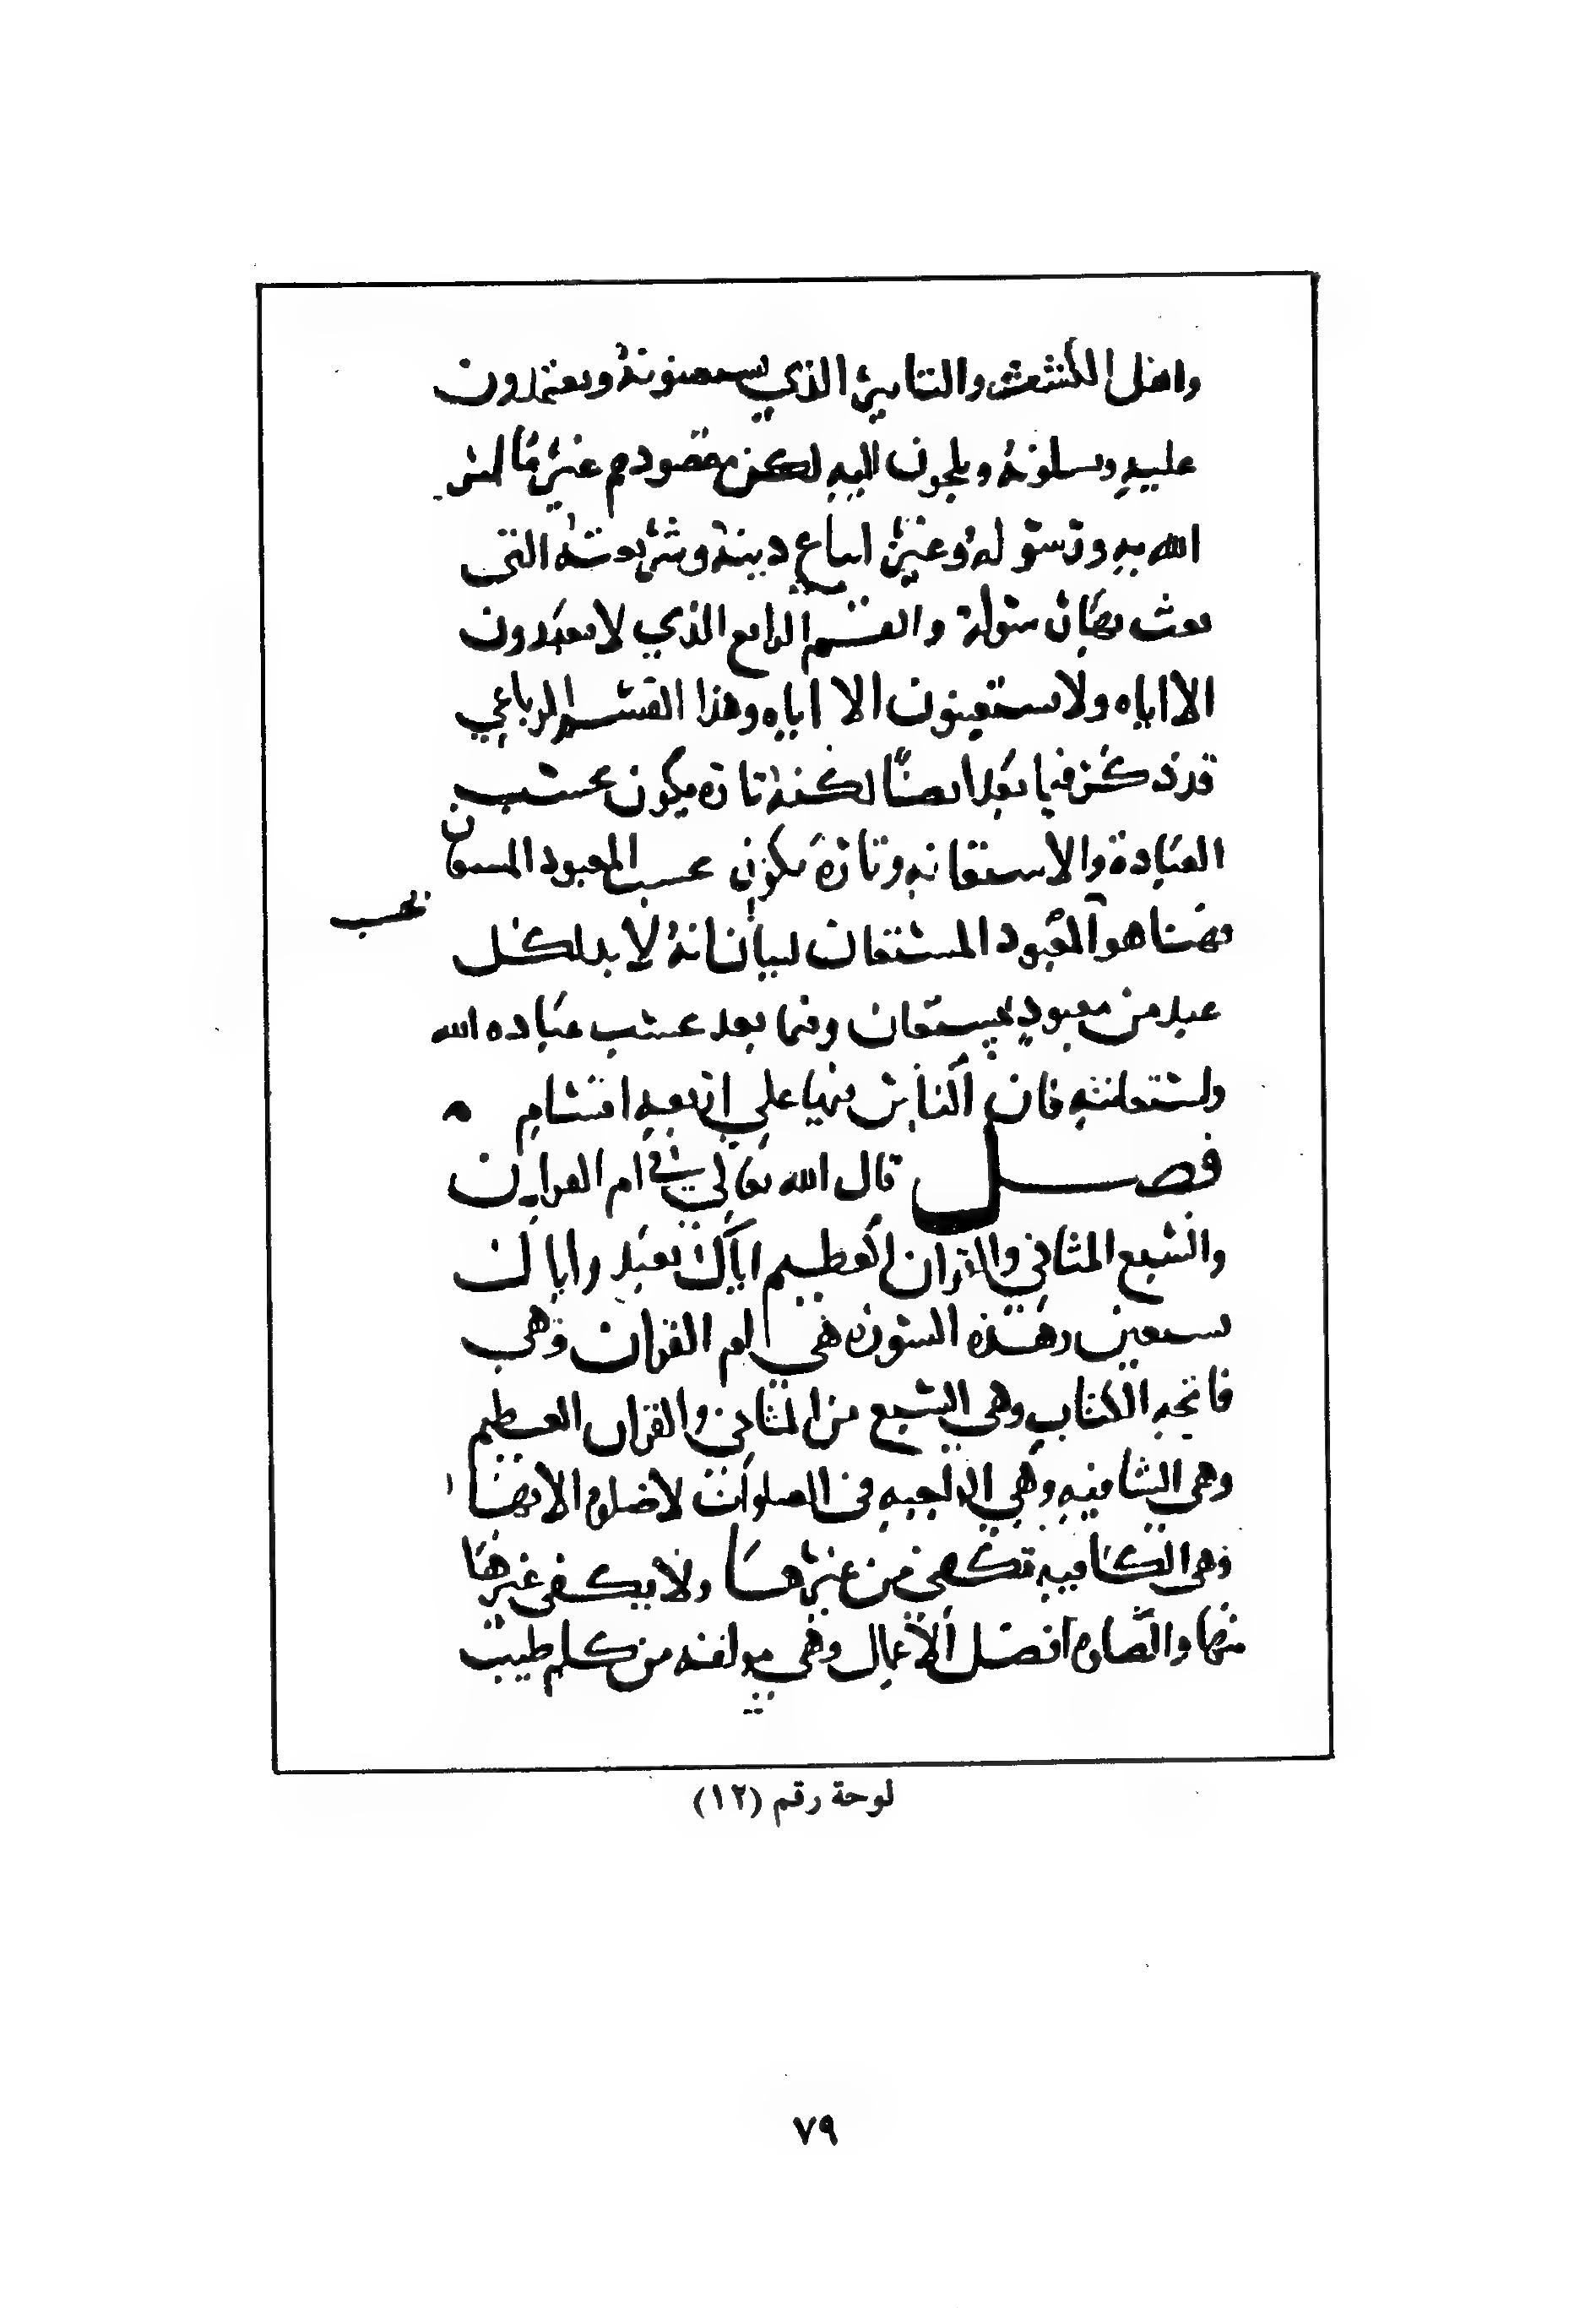 واهل الكشف والتاثير الذي يستعينونه ويعتمدون
عليه ويسلونه ويلجون اليه لكن مقصودهم غير ما امر
الله به ورسوله وغير اتباع دينه وشريعته التي
بعث بها رسوله والقسم الرابع الذي لا يعبدون
الا اياه ولا يستعينون الا اياه وهذا القسم الرباعي
قد ذكر فيما بعد ايضا لكنه تارة يكون بحسب
العبادة والاستعانه وتارة يكون بحسب المعبود المستعان
فهنا هو المعبود المستعان لبيان انه لا بد لكل
بحسب
عبد من معبود مستعان وفيما بعد بحسب عباده الله
واستعانته فان الناس فيها علي اربعه اقسام
فصل قال الله تعالي في ام القران
والسبع المثاني والقران العظيم اياك نعبد واياك
نستعين وهذه السوره هي ام القران وهي
فاتحه الكتاب وهي السبع من المثاني والقران العظيم
وهي الشافيه وهي الواجبه في الصلوات لا صلوة الا بها
وهي الكافيه تكفي من غيرها ولا يكفي غيرها
منها والصلوة افضل الاعمال وهي مولفه من كلم طيب
لوحة رقم (١٢)
٧٩